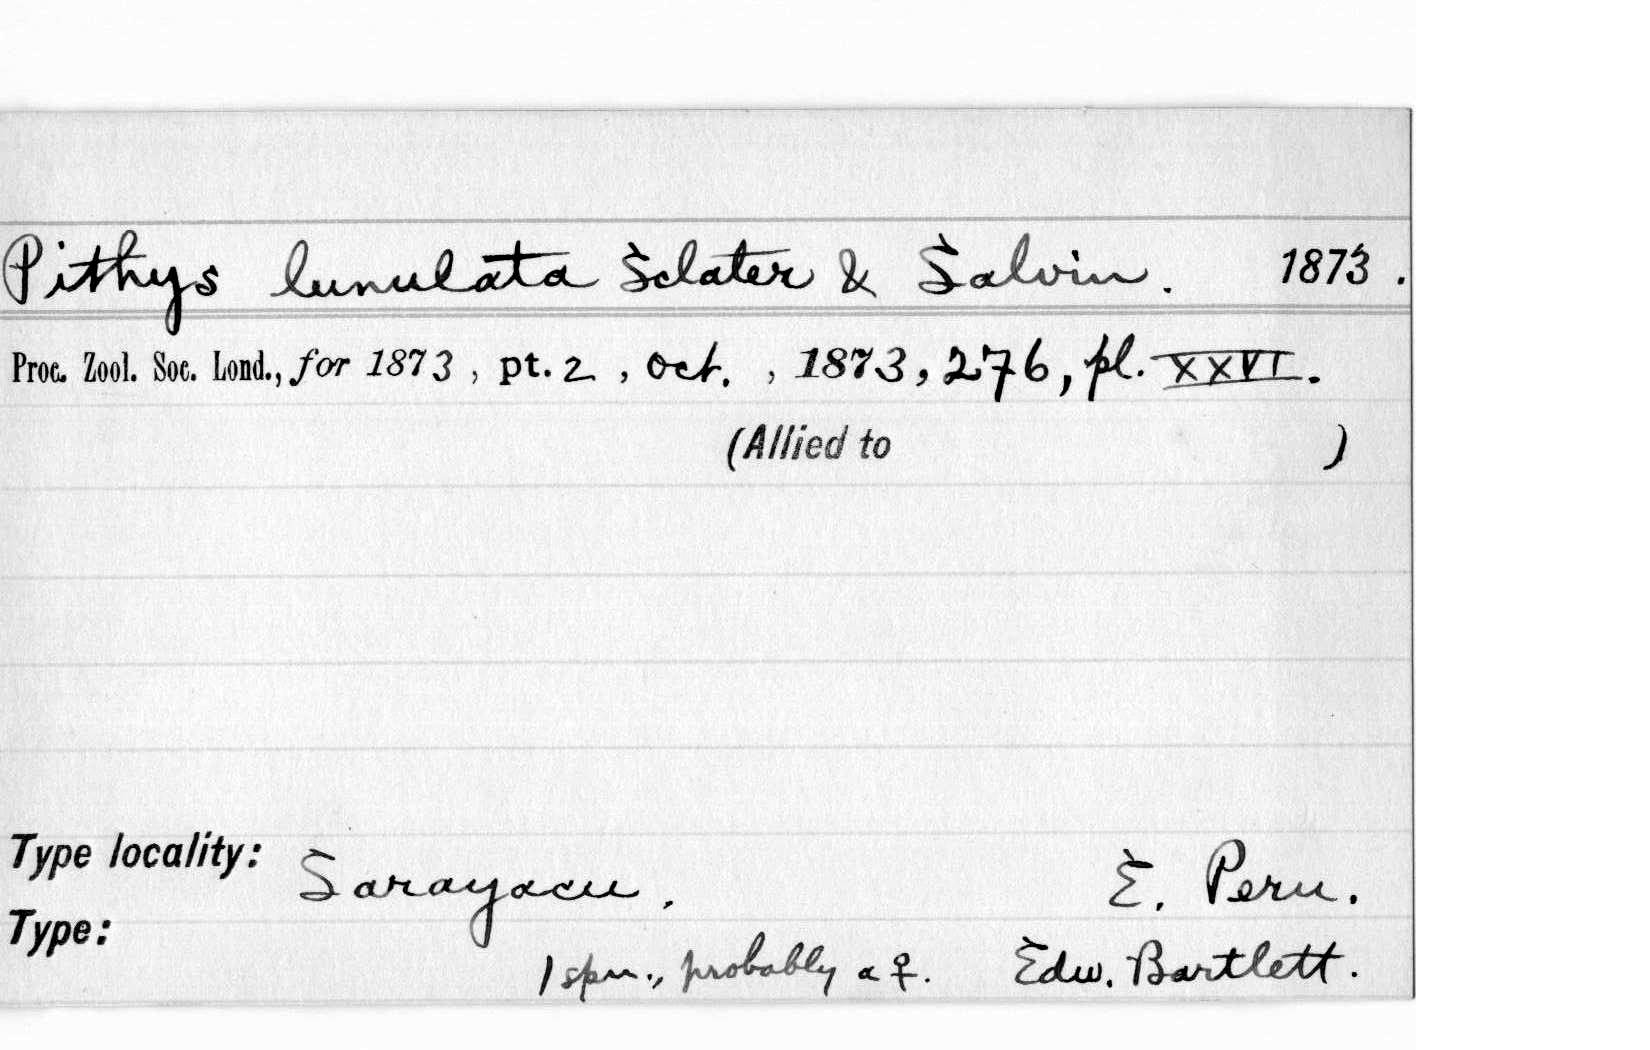 Pithys lunulata Sclater & Salvin. 1873.
Proc. Zool. Soc. Lond., for 1873, pt. 2, Oct. , 1873, 276, pl. XXVI.
(Allied to )
Type locality: Sarayacu, E. Peru.
Type:
1 spm., probably a ♀. Edw. Bartlett.